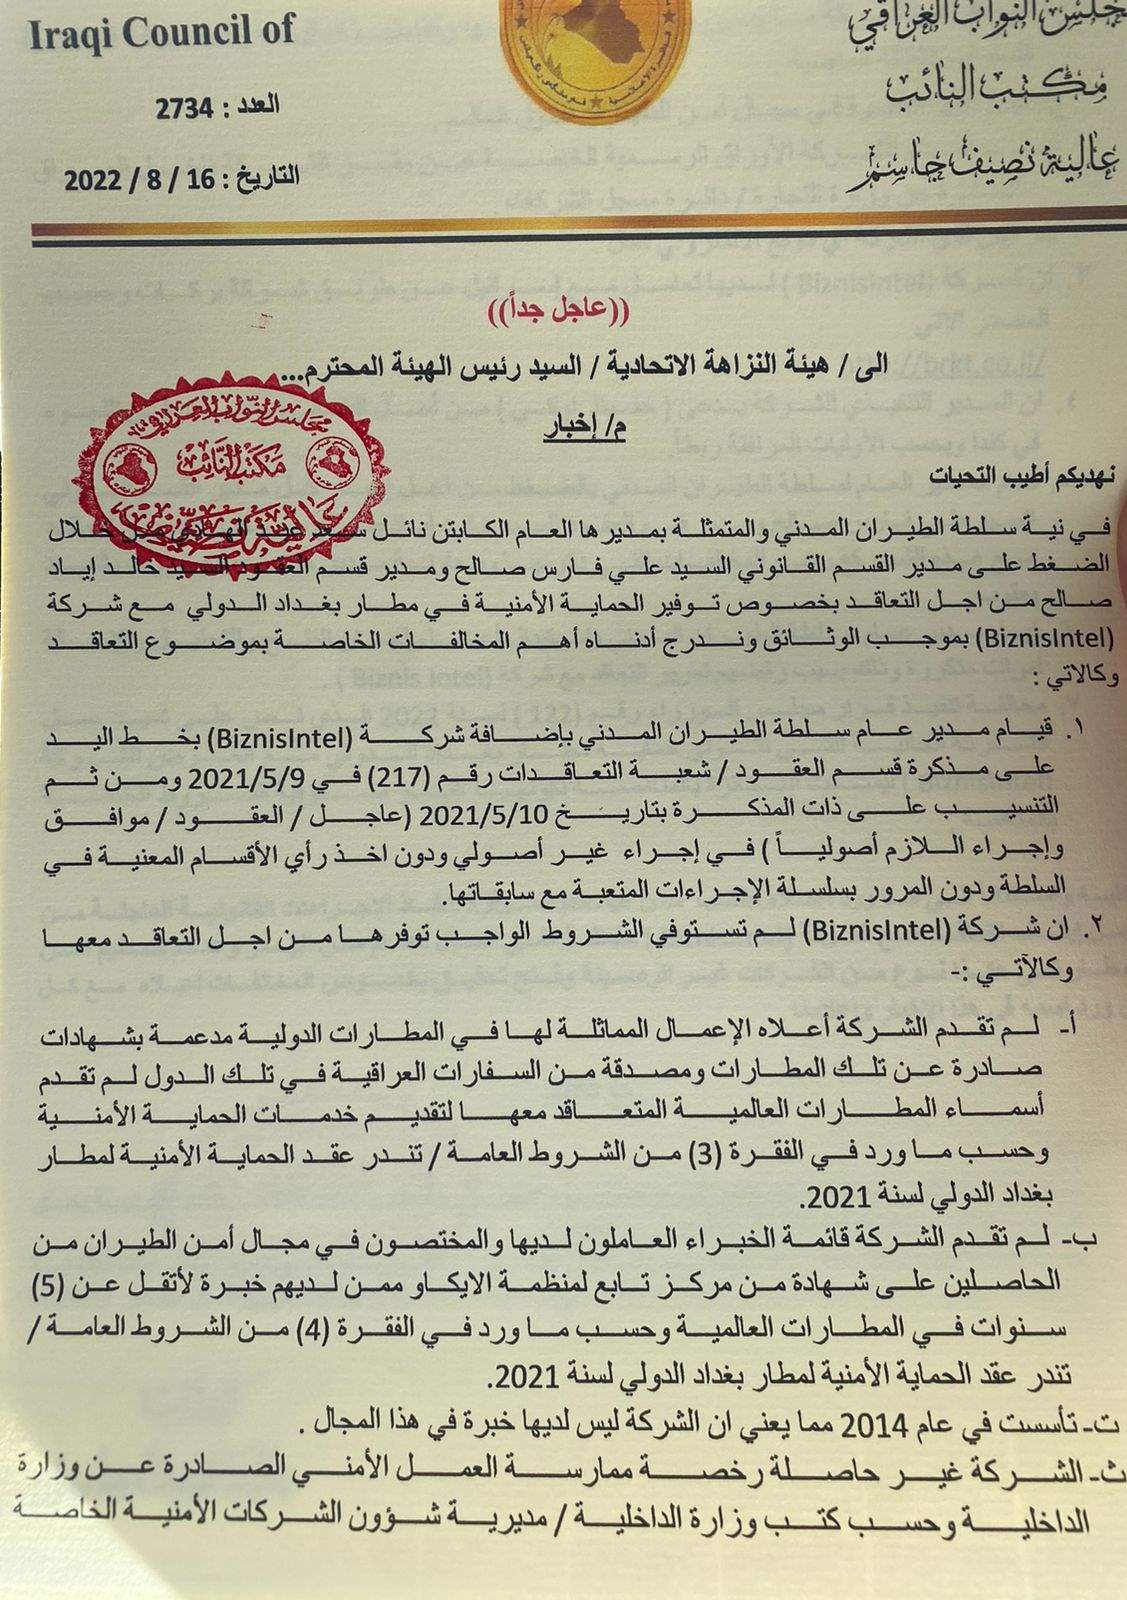 Iraqi Council of
مجلس النواب العراقي
مكتب النائب
عالية نصيف جاسم
العدد : 2734
التاريخ : 16 / 8 / 2022
((عاجل جداً))
الى / هيئة النزاهة الاتحادية / السيد رئيس الهيئة المحترم...
م/ إخبار
مجلس النواب العراقي
مكتب النائب
عالية نصيف
نهديكم أطيب التحيات
في نية سلطة الطيران المدني والمتمثلة بمديرها العام الكابتن نائل سعد عبد الهادي من خلال
الضغط على مدير القسم القانوني السيد علي فارس صالح ومدير قسم العقود السيد خالد إياد
صالح من اجل التعاقد بخصوص توفير الحماية الأمنية في مطار بغداد الدولي مع شركة
(BiznisIntel) بموجب الوثائق وندرج أدناه أهم المخالفات الخاصة بموضوع التعاقد
وكالاتي :
١. قيام مدير عام سلطة الطيران المدني بإضافة شركة (BiznisIntel) بخط اليد
على مذكرة قسم العقود / شعبة التعاقدات رقم (217) في 2021/5/9 ومن ثم
التنسيب على ذات المذكرة بتاريخ 2021/5/10 (عاجل / العقود / موافق
وإجراء اللازم أصولياً ) في إجراء غير أصولي ودون اخذ رأي الأقسام المعنية في
السلطة ودون المرور بسلسلة الإجراءات المتعبة مع سابقاتها.
٢. ان شركة (BiznisIntel) لم تستوفي الشروط الواجب توفرها من اجل التعاقد معها
وكالآتي :-
أ- لم تقدم الشركة أعلاه الإعمال المماثلة لها في المطارات الدولية مدعمة بشهادات
صادرة عن تلك المطارات ومصدقة من السفارات العراقية في تلك الدول لم تقدم
أسماء المطارات العالمية المتعاقد معها لتقديم خدمات الحماية الأمنية
وحسب ما ورد في الفقرة (3) من الشروط العامة / تندر عقد الحماية الأمنية لمطار
بغداد الدولي لسنة 2021.
ب- لم تقدم الشركة قائمة الخبراء العاملون لديها والمختصون في مجال أمن الطيران من
الحاصلين على شهادة من مركز تابع لمنظمة الايكاو ممن لديهم خبرة لأتقل عن (5)
سنوات في المطارات العالمية وحسب ما ورد في الفقرة (4) من الشروط العامة /
تندر عقد الحماية الأمنية لمطار بغداد الدولي لسنة 2021.
ت- تأسست في عام 2014 مما يعني ان الشركة ليس لديها خبرة في هذا المجال .
ث- الشركة غير حاصلة رخصة ممارسة العمل الأمني الصادرة عن وزارة
الداخلية وحسب كتب وزارة الداخلية / مديرية شؤون الشركات الأمنية الخاصة